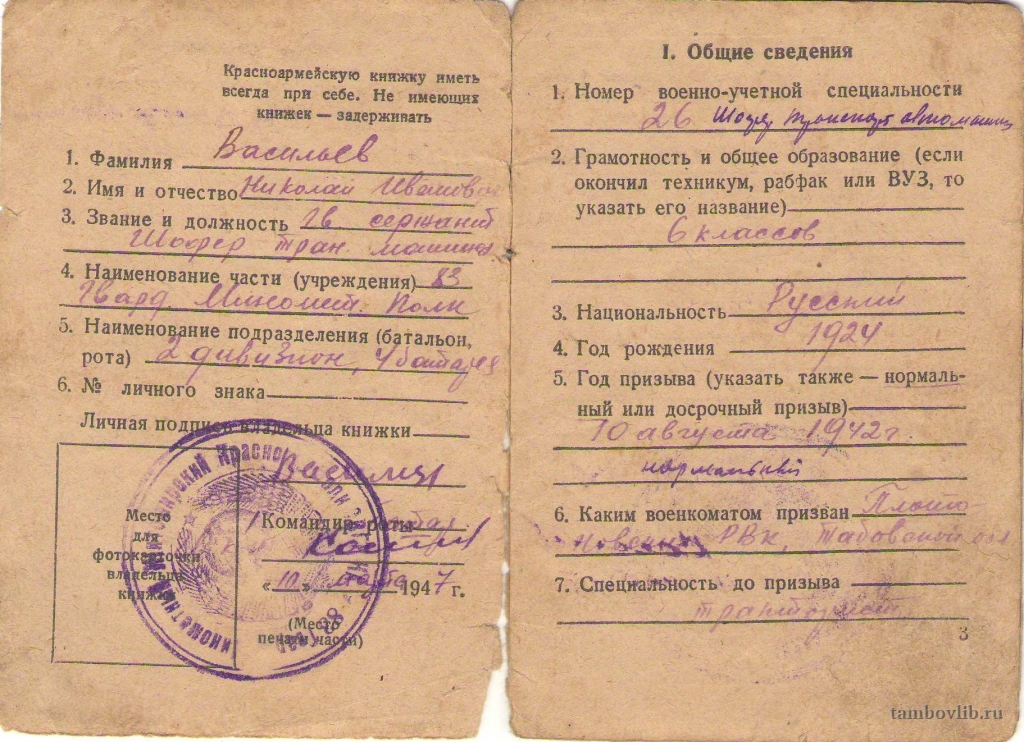 Красноармейскую книжку иметь
всегда при себе. Не имеющих
книжек — задерживать
1. Фамилия Васильев
2. Имя и отчество Николай Иванович
3. Звание и должность Гв. сержант
Шофер тран. машины
4. Наименование части (учреждения) 83
Гвард. Миномет. Полк
5. Наименование подразделения (батальон,
рота) 2 дивизион, 4 батарея
6. № личного знака
Личная подпись владельца книжки
Место
для
фотокарточки
владельца
книжки
Командир роты
« 10 » марта 1947 г.
(Место
печати части)
I. Общие сведения
1. Номер военно-учетной специальности
26 Шофер транспорт автомашин
2. Грамотность и общее образование (если
окончил техникум, рабфак или ВУЗ, то
указать его название)
6 классов
3. Национальность Русский
4. Год рождения 1924
5. Год призыва (указать также — нормаль-
ный или досрочный призыв)
10 августа 1942 г.
нормальный
6. Каким военкоматом призван Плато-
новским РВК, Тамбовской обл
7. Специальность до призыва
тракторист
3
tambovlib.ru